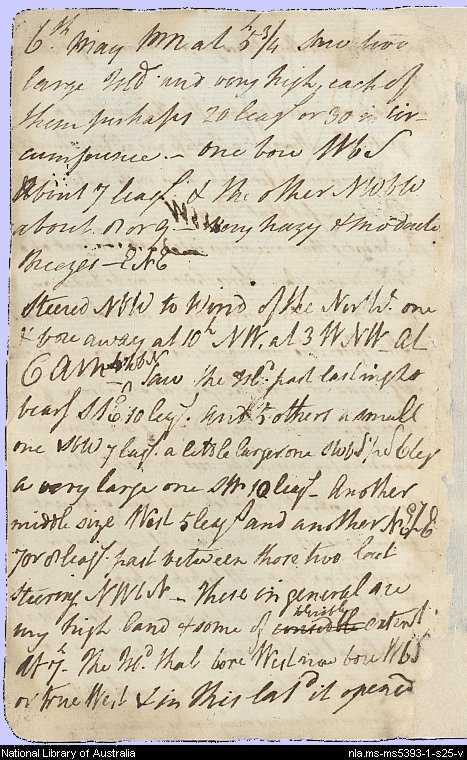 6th May PM at ½ 5¾ saw two
large Isds. and very high, each of
them perhaps 20 leags or 30 in cir-
cumference. - one bore WbS
about 7 leags & the other NWbW
about 8 or 9 Wea very hazy & moderate
breezes - ENE
steered NbW to Wind of the North. one
& bore away at 10h NW, at 3 WNW at
6 AM saw the Isd. past last night
bearg 10 leags. and 5 others a small
one SbW 7 leags. a little larger one SWbS 6 leg
a very large one SW 10 leags - Another
middle size West 5 leags and another
7 or 8 leags. past between those two last
steering NWbN - These in general are
very high land & some of considble extent
at 7h the Isd. that bore West now bore WbS
or true West & in this lat'd it opened
National Library of Australia
nla.ms-ms5393-1-s25-v